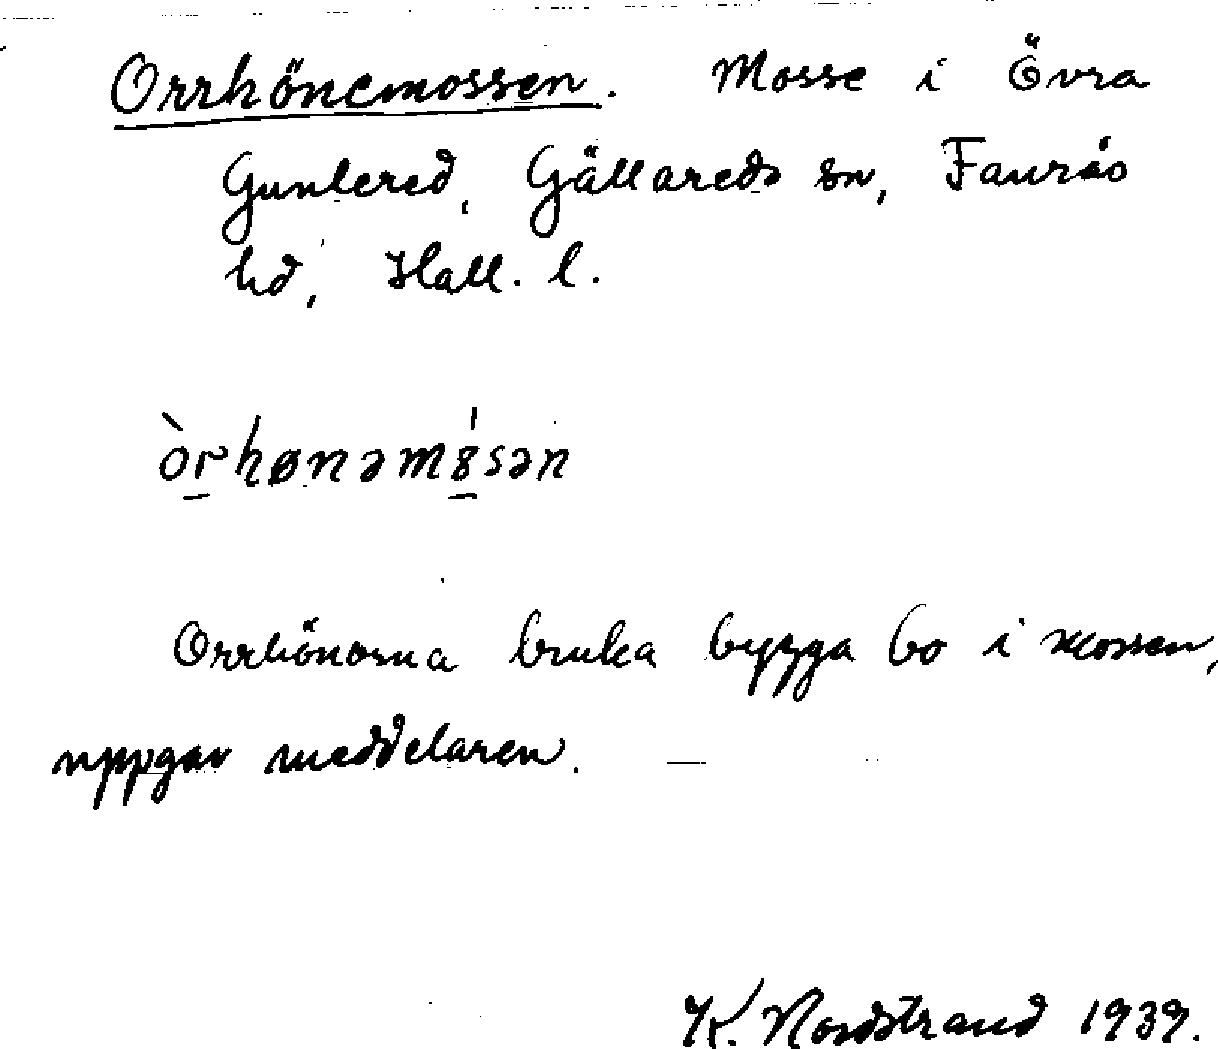 Orrhönemossen. Mosse i Övra
Gunkered, Gällareds sn, Faurås
hd, Hall. l.
òrhønəm8́sən
Orrhönorna bruka bygga bo i mossen,
uppgav meddelaren. —
K. Nordstrand 1939.